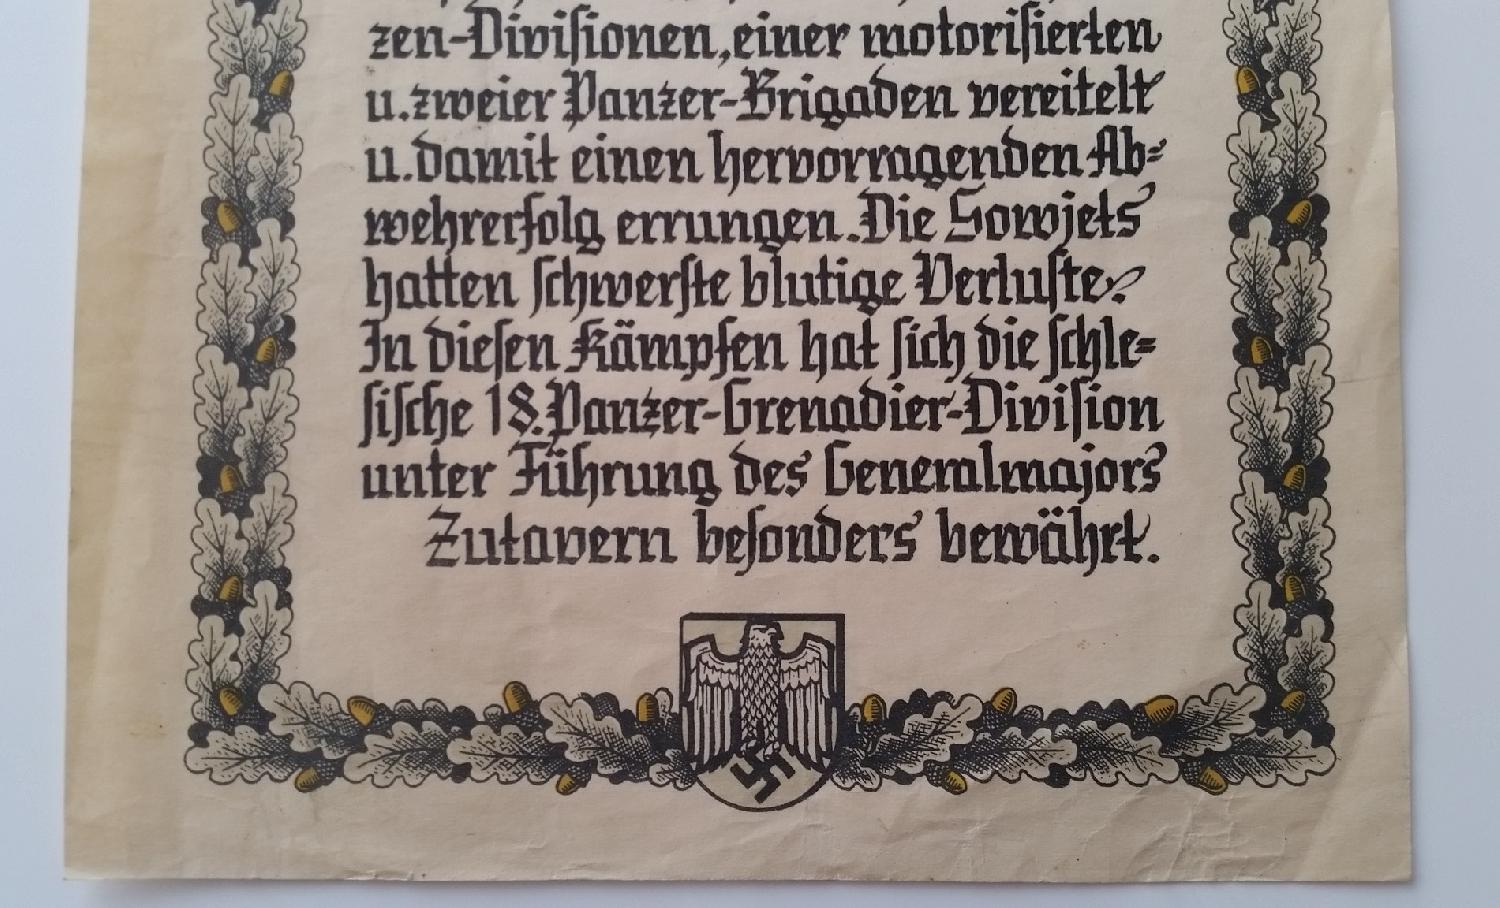 zen-Divisionen, einer motorisierten
u. zweier Panzer-Brigaden vereitelt
u. damit einen hervorragenden Ab=
wehrerfolg errungen. Die Sowjets
hatten schwerste blutige Verluste.
In diesen Kämpfen hat sich die schle=
sische 18. Panzer-Grenadier-Division
unter Führung des Generalmajors
Zutavern besonders bewährt.